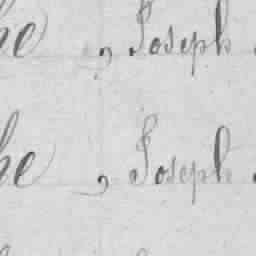 he , Joseph
he , Joseph